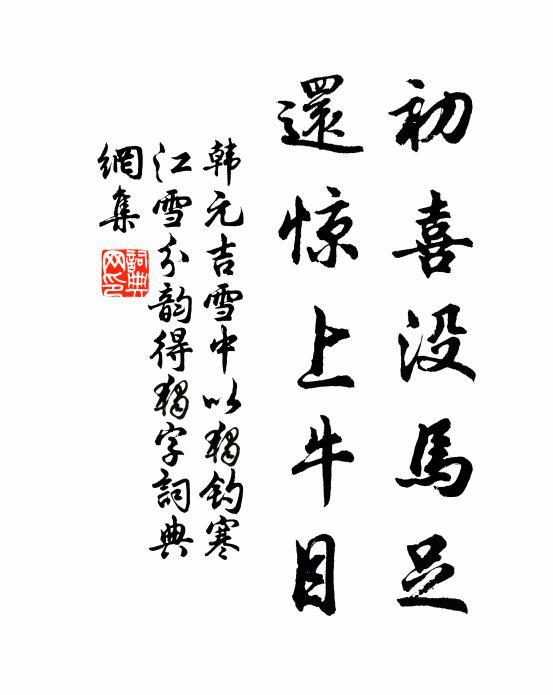 初喜没馬足
還惊上牛目
韩元吉雪中以獨釣寒
江雪分韵得獨字詞典
網集
詞典网印